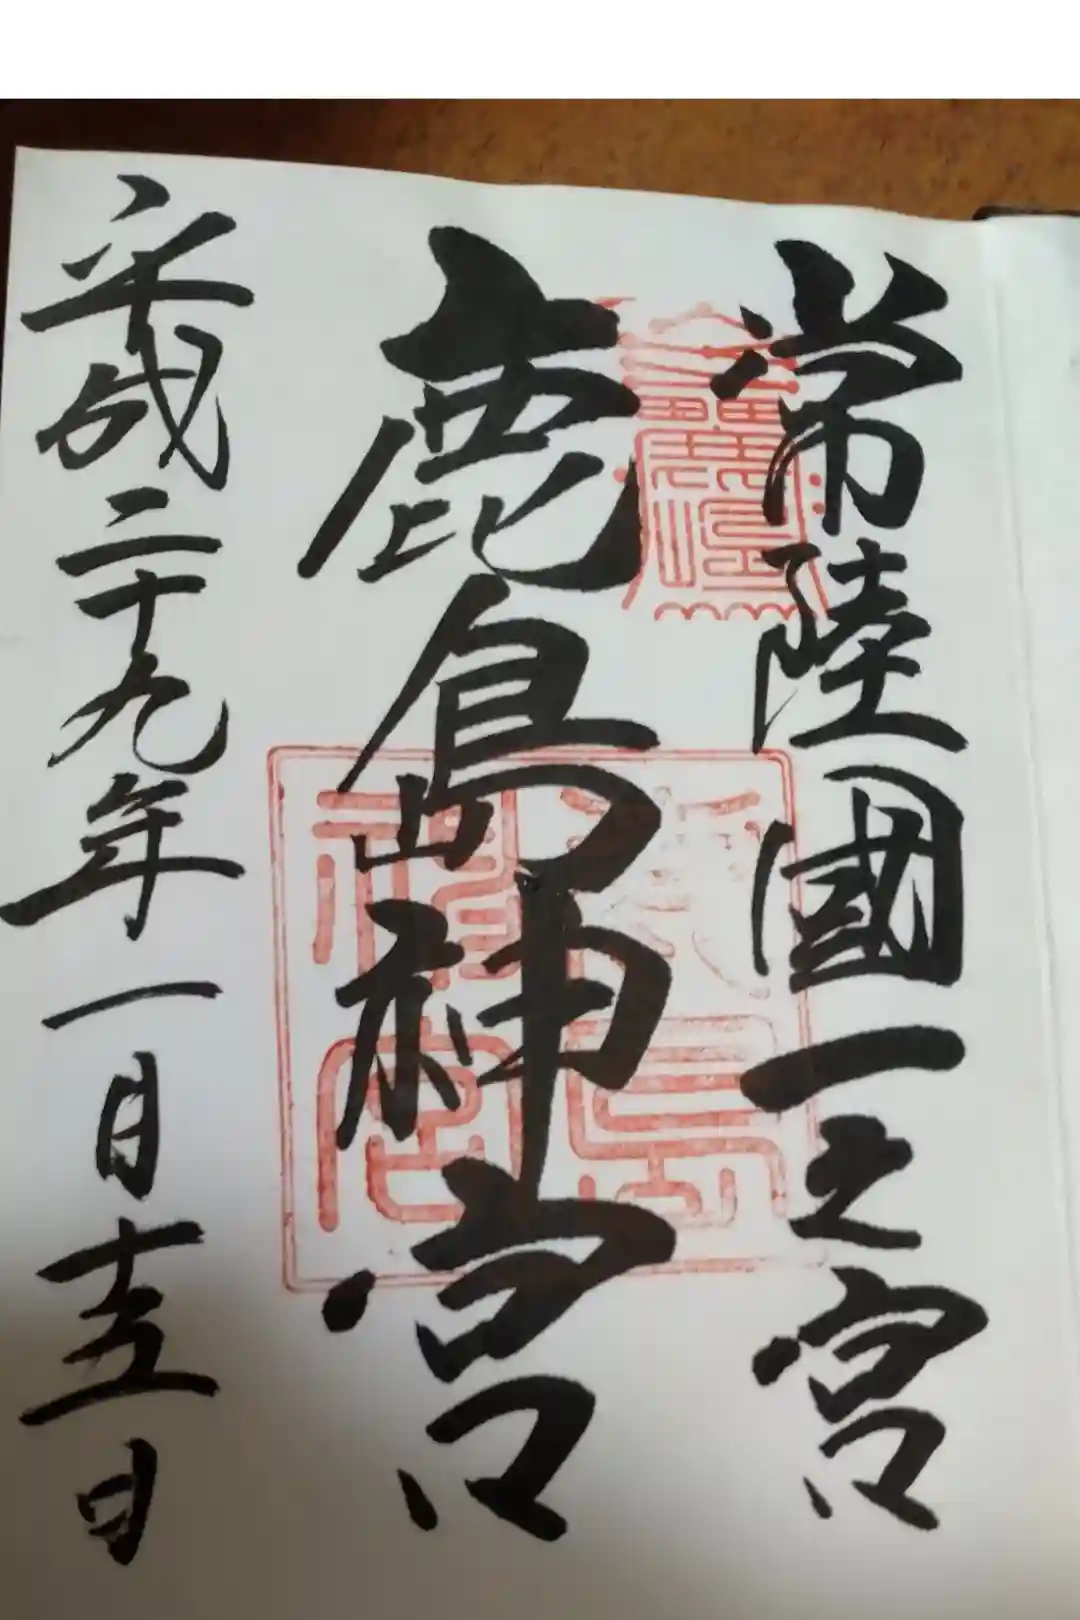 常陸國一之宮
鹿島神宮
平成二十九年一月十五日